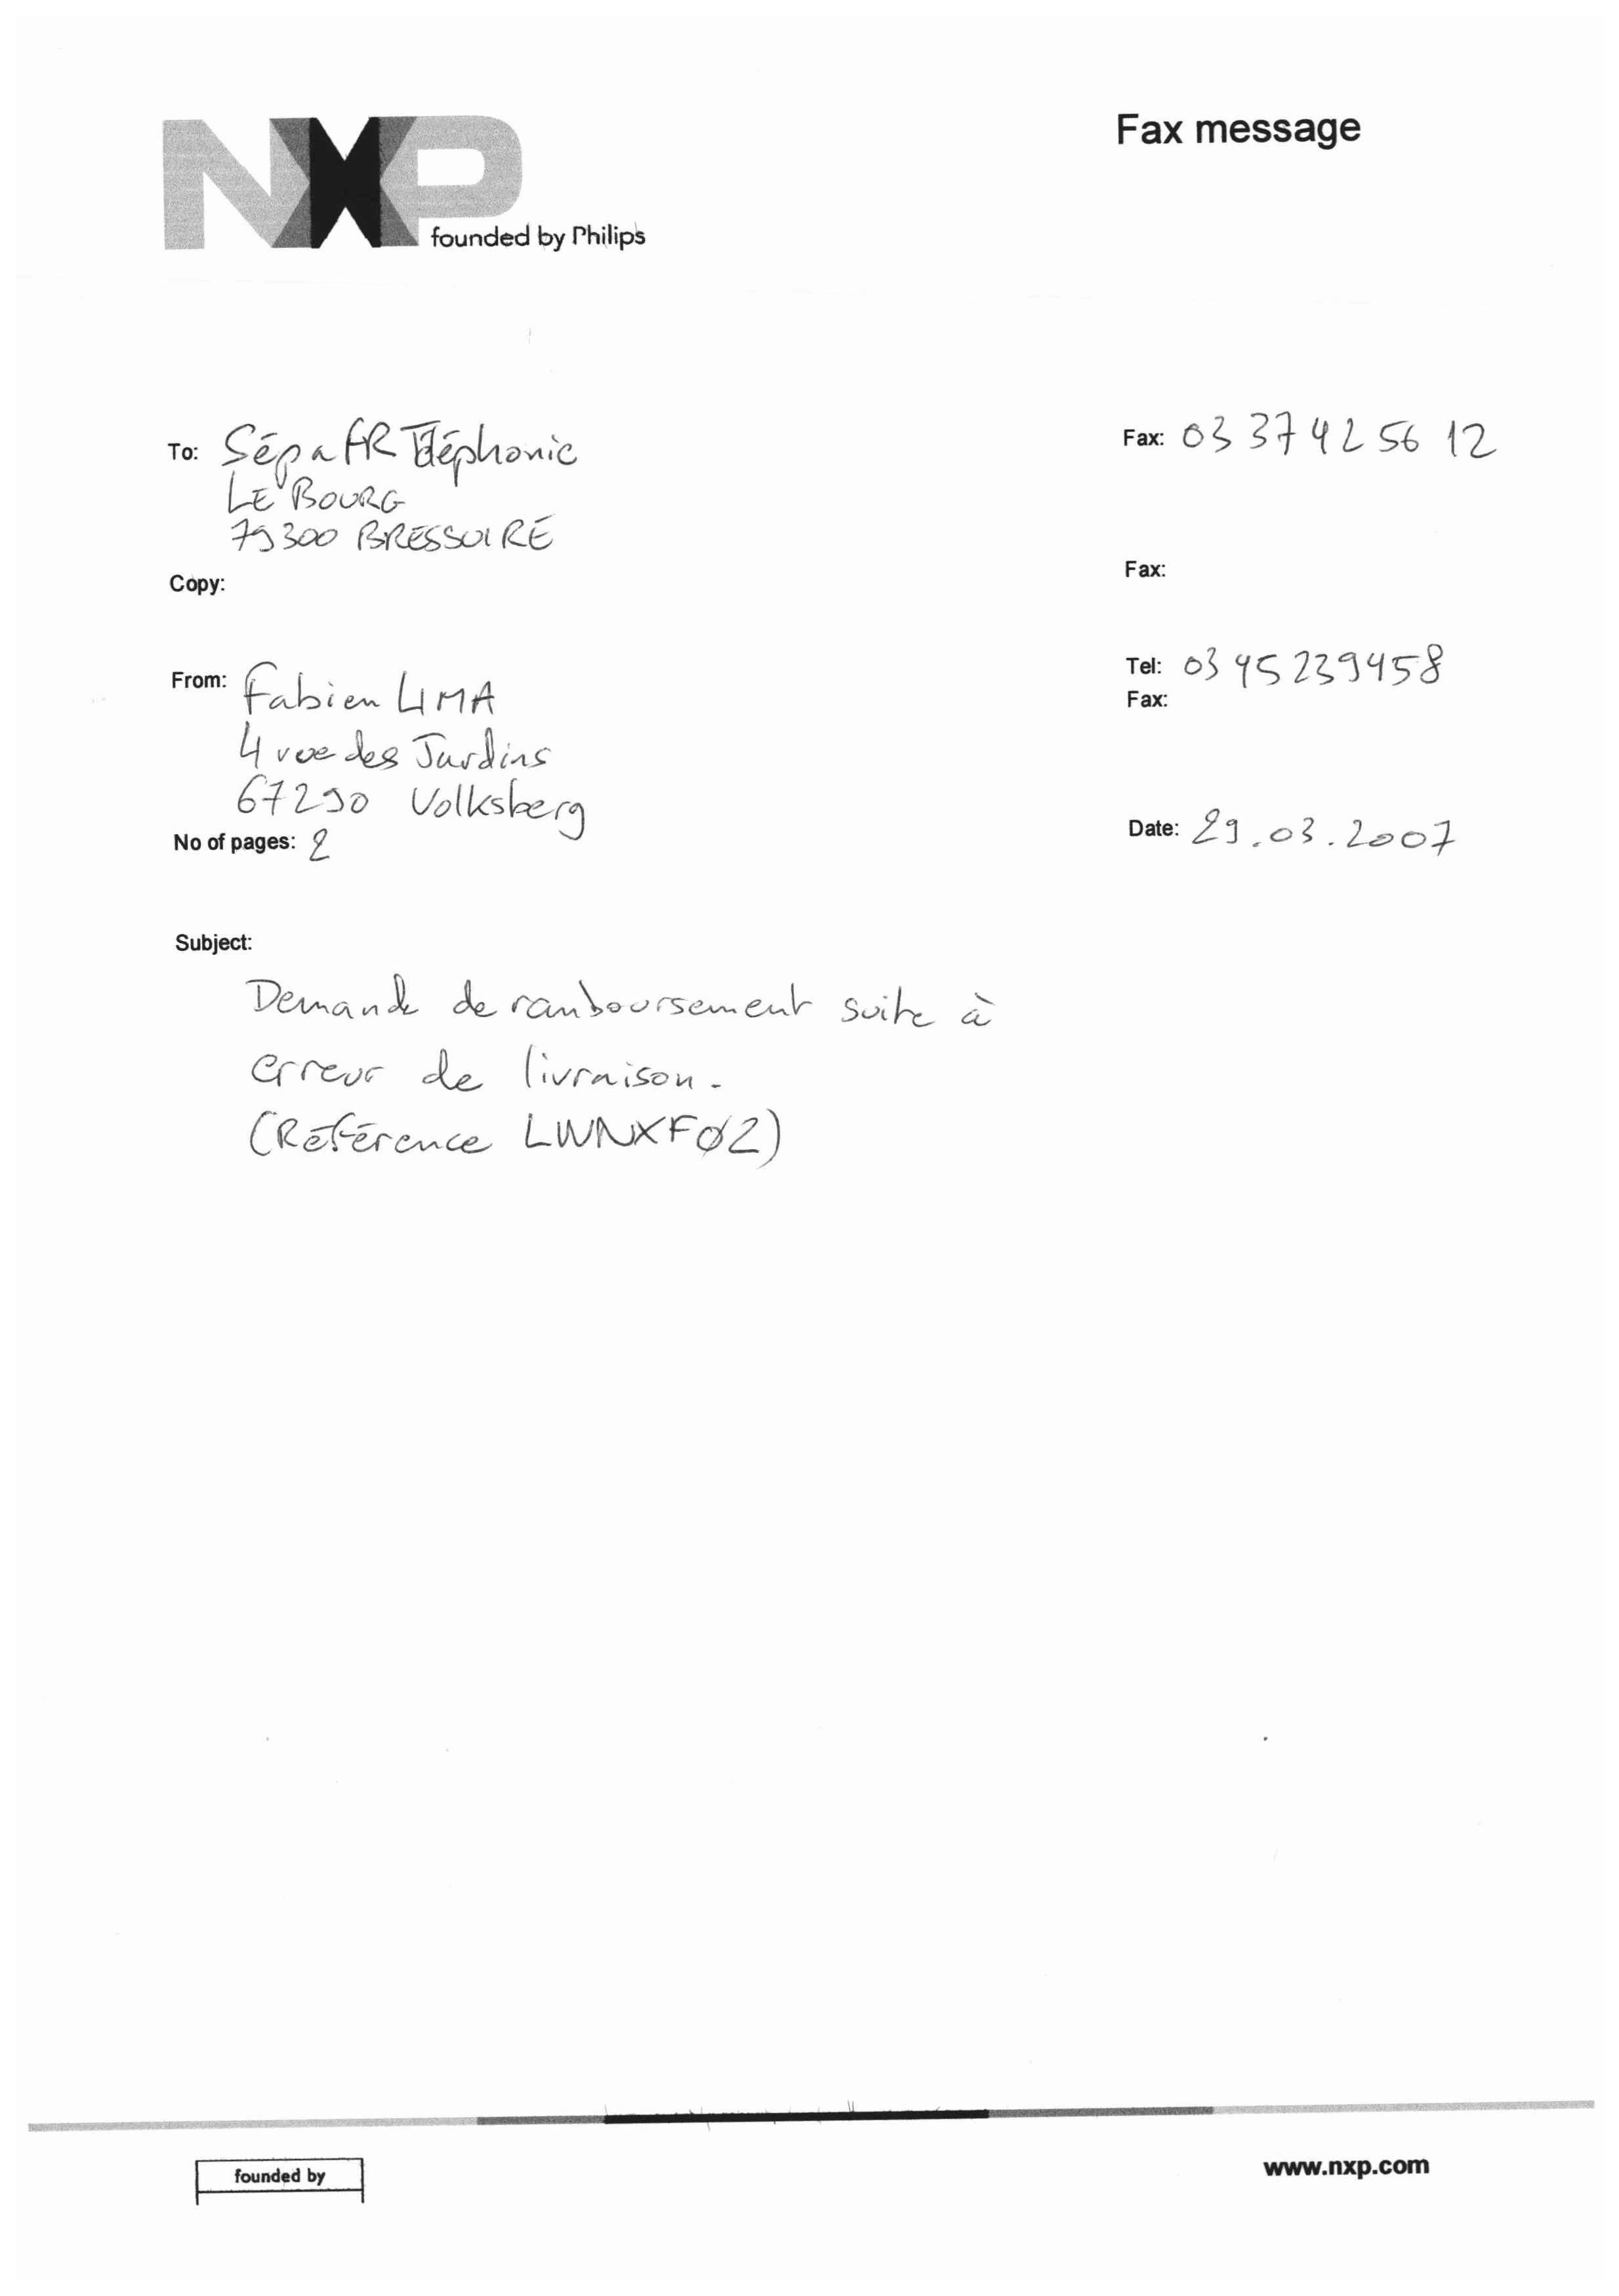 NXP
founded by Philips
Fax message
To: SépaFR Téléphonie
LE BOURG
79300 BRESSUIRE
Fax: 03 37 42 56 12
Copy:
Fax:
From: Fabien LIMA
4 rue des Jardins
67290 Volksberg
Tel: 03 45 23 94 58
Fax:
No of pages: 2
Date: 29.03.2007
Subject:
Demande de ramboursement suite à
erreur de livraison.
(Référence LWNXF02)
founded by
www.nxp.com